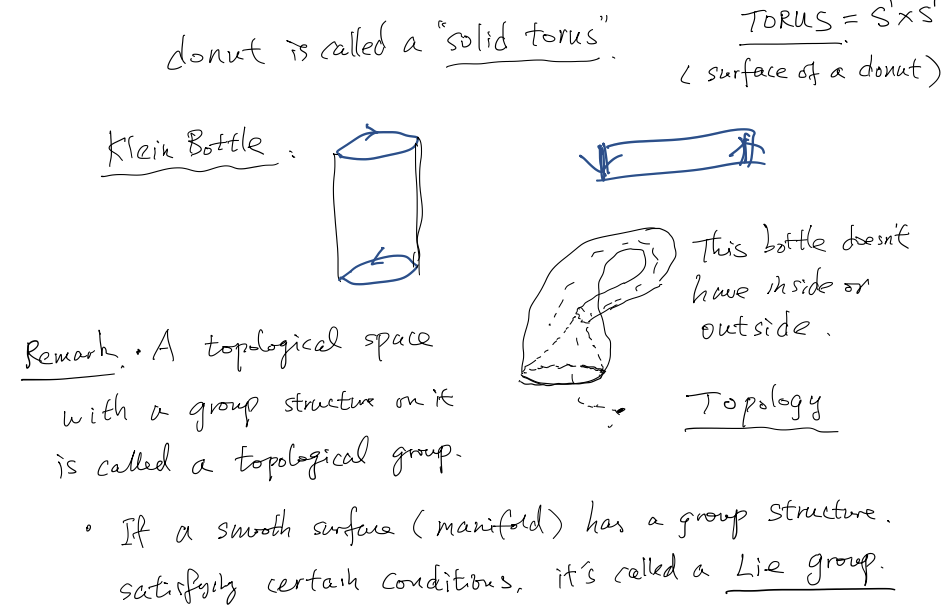 donut is called a "solid torus".
TORUS = S¹×S¹
(surface of a donut)
Klein Bottle :
This bottle doesn't
have inside or
outside.
Remark. · A topological space
with a group structure on it
is called a topological group.
Topology
· If a smooth surface (manifold) has a group structure.
satisfying certain conditions, it's called a Lie group.